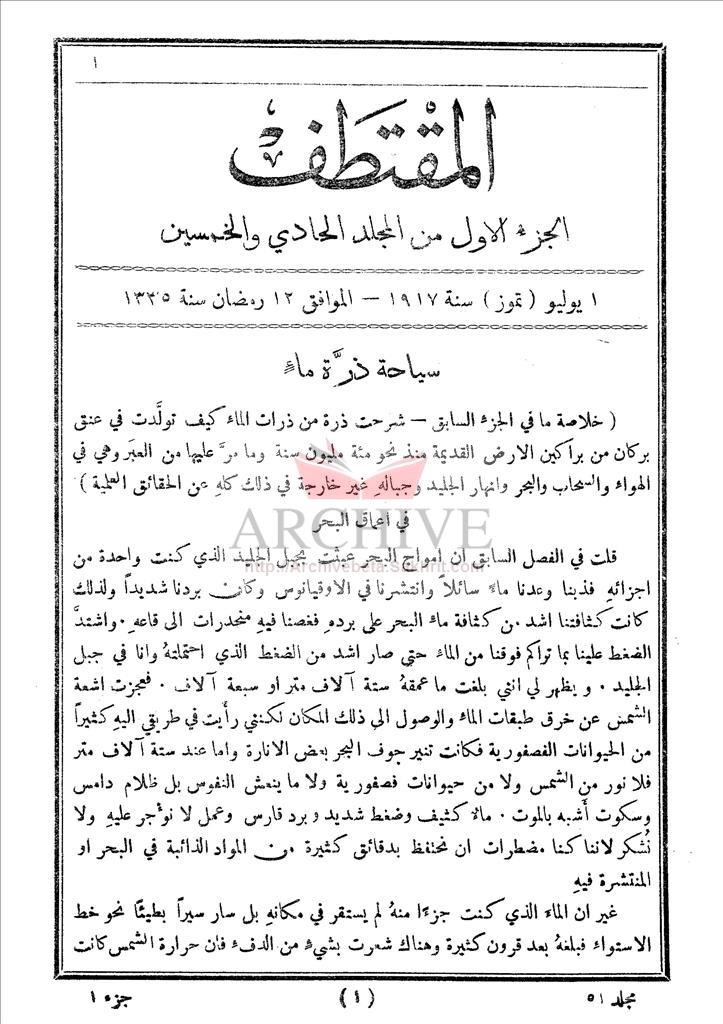 ١
المقتطف
الجزء الاول من المجلد الحادي والخمسين
١ يوليو ( تموز ) سنة ١٩١٧ – الموافق ١٢ رمضان سنة ١٣٣٥
سياحة ذرَّة ماءٍ
( خلاصة ما في الجزء السابق – شرحت ذرة من ذرات الماء كيف تولَّدت في عنق
بركان من براكين الارض القديمة منذ نحو مئة مليون سنة وما مرَّ عليها من العبَر وهي في
الهواء والسحاب والبحر وانهار الجليد وجبالهِ غير خارجة في ذلك كله عن الحقائق العلمية )
في اعماق البحر
ARCHIVE
http://Archivebeta.Sakhrit.com
قلت في الفصل السابق ان امواج البحر عبثت بجبل الجليد الذي كنت واحدة من
اجزائهِ فذبنا وعدنا ماءً سائلاً وانتشرنا في الاوقيانوس وكان بردنا شديداً ولذلك
كانت كثافتنا اشد من كثافة ماء البحر على بردهِ فغصنا فيهِ منحدرات الى قاعهِ . واشتدَّ
الضغط علينا بما تراكم فوقنا من الماء حتى صار اشد من الضغط الذي احتملتهُ وانا في جبل
الجليد . ويظهر لي انني بلغت ما عمقهُ ستة آلاف متر او سبعة آلاف . فعجزت اشعة
الشمس عن خرق طبقات الماء والوصول الى ذلك المكان لكنني رأيت في طريقي اليهِ كثيراً
من الحيوانات الفصفورية فكانت تنير جوف البحر بعض الانارة واما عند ستة آلاف متر
فلا نور من الشمس ولا من حيوانات فصفورية ولا ما ينعش النفوس بل ظلام دامس
وسكوت أشبه بالموت . مالا كثيف وضغط شديد وبرد قارس وعمل لا نوُجر عليهِ ولا
نُشكر لاننا كنا مضطرات ان نحتفظ بدقائق كثيرة من المواد الذائبة في البحر او
المنتشرة فيهِ
غير ان الماء الذي كنت جزءًا منهُ لم يستقر في مكانهِ بل سار سيراً بطيئًا نحو خط
الاستواء فبلغهُ بعد قرون كثيرة وهناك شعرت بشيءٍ من الدفء فان حرارة الشمس كانت
مجلد ٥١
( ١ )
جزء ١